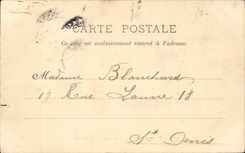 CARTE POSTALE
Ce côté est exclusivement réservé à l'adresse.
Madame Blanchard
17 Rue Lanne 17
St Denis